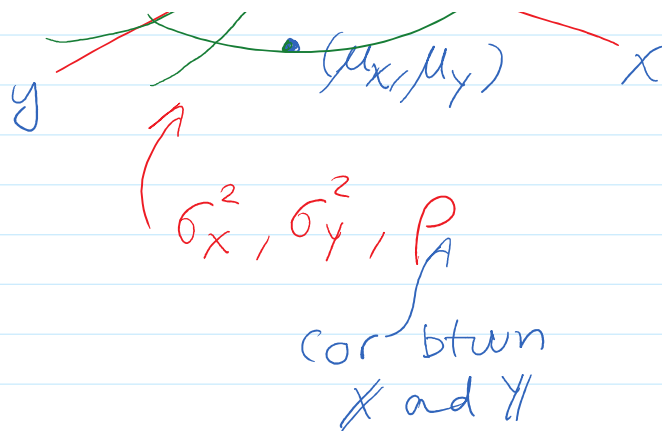 (μ_X, μ_Y) X
y
σ_X^2, σ_Y^2, ρ
cor btwn
X and Y